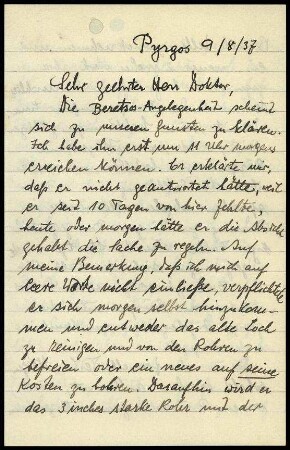 Pyrgos 9/8/37
Sehr geehrter Herr Doktor,
Die Beretsos-Angelegenheit scheint
sich zu unseren Gunsten zu klären.
Ich habe ihn erst um 11 Uhr morgens
erreichen können. Er erklärte mir,
daß er nicht geantwortet hätte, weil
er seit 10 Tagen von hier fehlte,
heute oder morgen hätte er die Absicht
gehabt die Sache zu regeln. Auf
meine Bemerkung, daß ich mich auf
leere Worte nicht einließe, verpflichtete
er sich morgen selbst hinzukom-
men und entweder das alte Loch
zu reinigen und von den Rohren zu
befreien oder ein neues auf seine
Kosten zu bohren. Daraufhin wird er
das 3 inches starke Rohr mit der